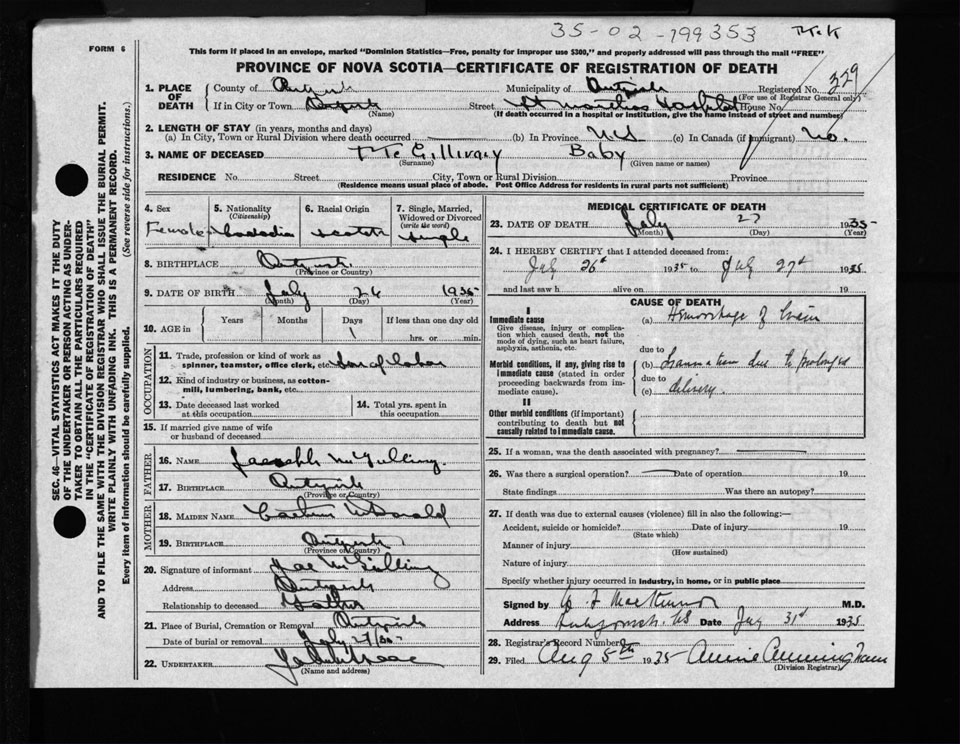 35-02-799353
FORM 6
This form if placed in an envelope, marked "Dominion Statistics—Free, penalty for improper use $300," and properly addressed will pass through the mail "FREE"
PROVINCE OF NOVA SCOTIA—CERTIFICATE OF REGISTRATION OF DEATH
329
1. PLACE OF DEATH
County of
Municipality of
Registered No.
(For use of Registrar General only)
If in City or Town
(Name)
Street St Hospital House No.
(If death occurred in a hospital or institution, give the name instead of street and number)
2. LENGTH OF STAY (in years, months and days)
(a) In City, Town or Rural Division where death occurred (b) In Province N.S (c) In Canada (if immigrant) No.
3. NAME OF DECEASED McGillivray Baby
(Surname) (Given name or names)
RESIDENCE No. Street City, Town or Rural Division Province
(Residence means usual place of abode. Post Office Address for residents in rural parts not sufficient)
4. Sex
Female
5. Nationality
(Citizenship)
6. Racial Origin
7. Single, Married, Widowed or Divorced
(write the word)
Single
8. BIRTHPLACE
(Province or Country)
9. DATE OF BIRTH July 26 1935
(Month) (Day) (Year)
10. AGE in
Years Months Days If less than one day old
1
hrs. or min.
OCCUPATION
11. Trade, profession or kind of work as spinner, teamster, office clerk, etc.
12. Kind of industry or business, as cotton-mill, lumbering, bank, etc.
13. Date deceased last worked at this occupation
14. Total yrs. spent in this occupation
15. If married give name of wife or husband of deceased
FATHER
16. NAME
17. BIRTHPLACE
(Province or Country)
MOTHER
18. MAIDEN NAME
19. BIRTHPLACE
(Province or Country)
20. Signature of informant
Address
Relationship to deceased Father
21. Place of Burial, Cremation or Removal
Date of burial or removal July 27/35
22. UNDERTAKER
(Name and address)
MEDICAL CERTIFICATE OF DEATH
23. DATE OF DEATH July 27 1935
(Month) (Day) (Year)
24. I HEREBY CERTIFY that I attended deceased from:
July 26th 1935 to July 27th 1935
and last saw h alive on 19
CAUSE OF DEATH
I
Immediate cause
Give disease, injury or complication which caused death, not the mode of dying, such as heart failure, asphyxia, asthenia, etc.
(a) Hemorrhage of brain
due to
Morbid conditions, if any, giving rise to immediate cause (stated in order proceeding backwards from immediate cause).
(b) due to prolonged
due to
(c) delivery
II
Other morbid conditions (if important) contributing to death but not causally related to immediate cause.
25. If a woman, was the death associated with pregnancy?
26. Was there a surgical operation? Date of operation 19
State findings Was there an autopsy?
27. If death was due to external causes (violence) fill in also the following:—
Accident, suicide or homicide? Date of injury 19
(State which)
Manner of injury
(How sustained)
Nature of injury
Specify whether injury occurred in industry, in home, or in public place
Signed by M.D.
Address NS Date July 31st 1935
28. Registrar's Record Number
29. Filed Aug 5th 1935 Annie Cunningham
(Division Registrar)
SEC. 46—VITAL STATISTICS ACT MAKES IT THE DUTY
OF THE UNDERTAKER OR PERSON ACTING AS UNDER-
TAKER TO OBTAIN ALL THE PARTICULARS REQUIRED
IN THE "CERTIFICATE OF REGISTRATION OF DEATH"
AND TO FILE THE SAME WITH THE DIVISION REGISTRAR WHO SHALL ISSUE THE BURIAL PERMIT.
WRITE PLAINLY WITH UNFADING INK. THIS IS A PERMANENT RECORD.
Every item of information should be carefully supplied. (See reverse side for instructions.)